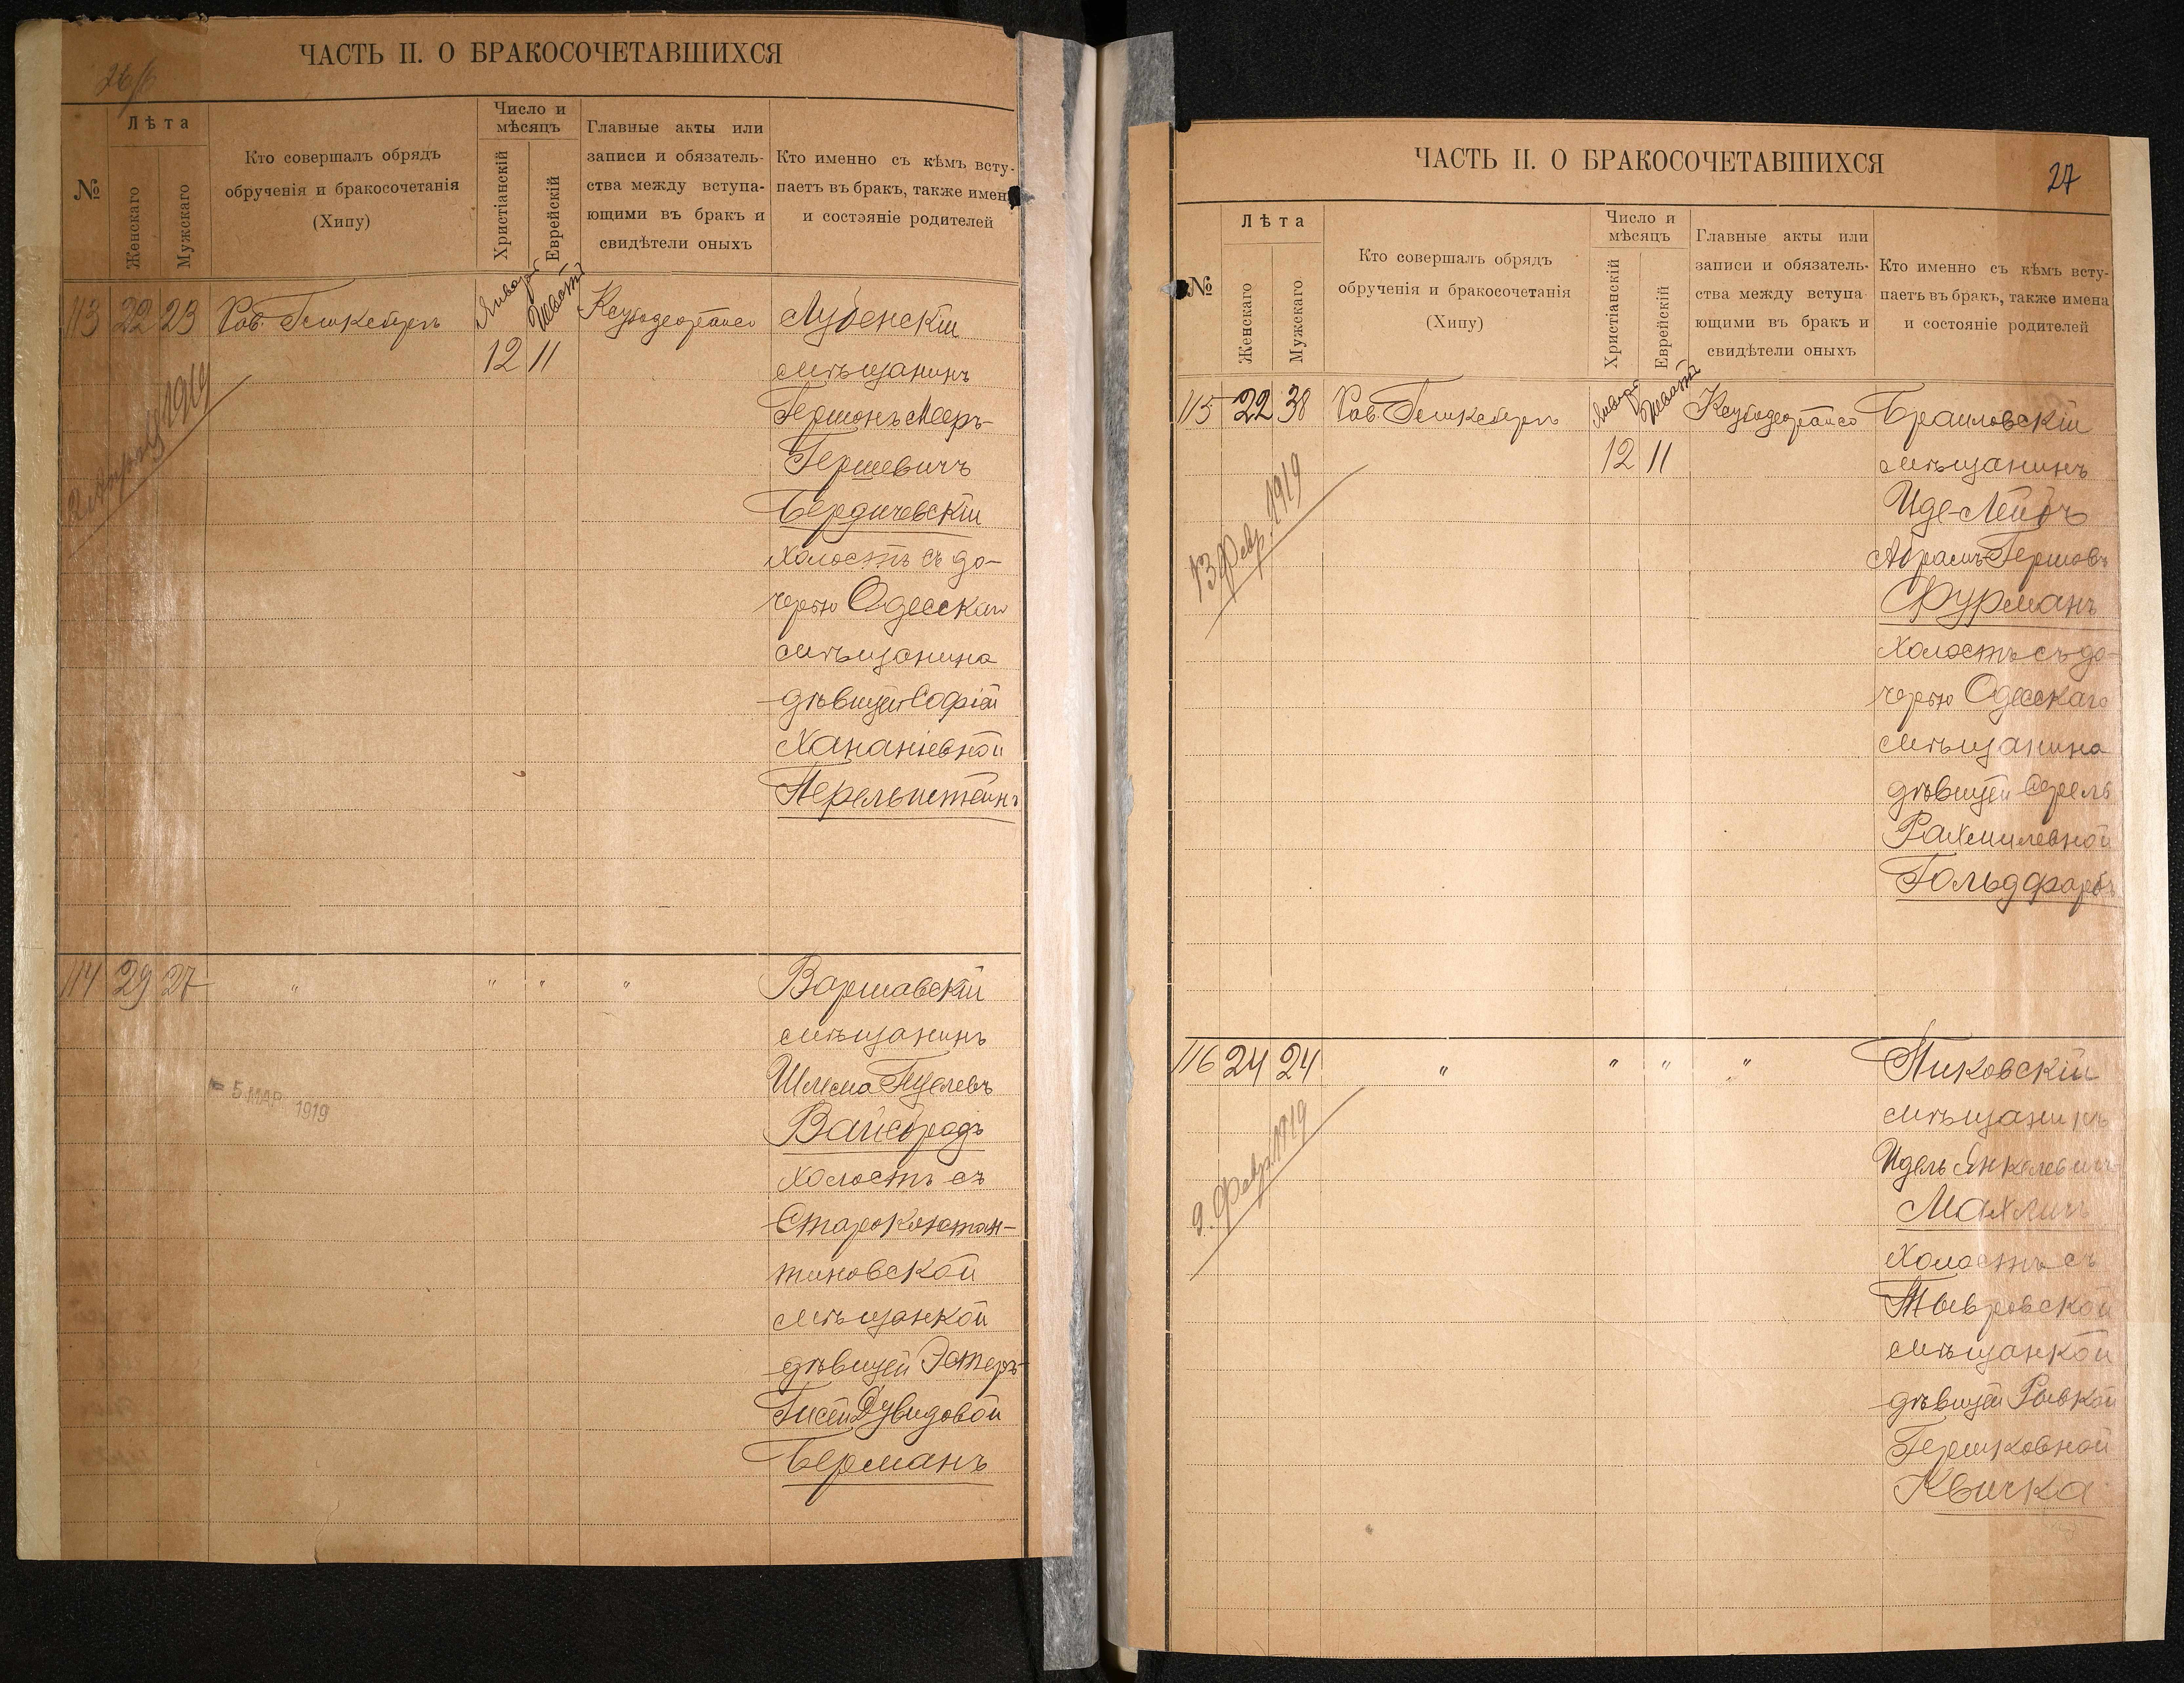 ЧАСТЬ II. О БРАКОСОЧЕТАВШИХСЯ
№
Лѣта
Женскаго
Мужскаго
Кто совершалъ обрядъ
обрученія и бракосочетанія
(Хипу)
Число и
мѣсяцъ
Христіанскій
Еврейскій
Главные акты или
записи и обязатель-
ства между вступа-
ющими въ бракъ и
свидѣтели оныхъ
Кто именно съ кѣмъ всту-
паетъ въ бракъ, также имена
и состояніе родителей
113 22 23
Январ
Шватъ
12 11
1919
Лубенскій
мѣщанинъ
Гершонъ Мееръ-
Гершевичъ
Бердичевскій
холостъ съ до-
черью Одесскаго
мѣщанина
дѣвицей Софіей
Хананіевной
Перельштейнъ
114 29 27 " " " "
5 МАР 1919
Варшавскій
мѣщанинъ
Шлема
Вайсбрадъ
холостъ съ
Староконстан-
тиновской
мѣщанкой
дѣвицей Эстеръ-
Гисей Дувидовой
Берманъ
ЧАСТЬ II. О БРАКОСОЧЕТАВШИХСЯ
27
№
Лѣта
Женскаго
Мужскаго
Кто совершалъ обрядъ
обрученія и бракосочетанія
(Хипу)
Число и
мѣсяцъ
Христіанскій
Еврейскій
Главные акты или
записи и обязатель-
ства между вступа-
ющими въ бракъ и
свидѣтели оныхъ
Кто именно съ кѣмъ всту-
паетъ въ бракъ, также имена
и состояніе родителей
115 22 38
Январ
Шватъ
12 11
13 Февр. 1919
Браиловскій
мѣщанинъ
Иде-Лейбъ
Абрамъ-Гершовъ
Фурманъ
холостъ съ до-
черью Одесскаго
мѣщанина
дѣвицей Сурель
Рахмилевной
Гольдфарбъ
116 24 24 " " " "
9. Февр. 1919
Пиковскій
мѣщанинъ
Идель Янкелевичъ
Махлинъ
холостъ съ
Тывровской
мѣщанкой
дѣвицей Рывкой
Гершковной
Квичка